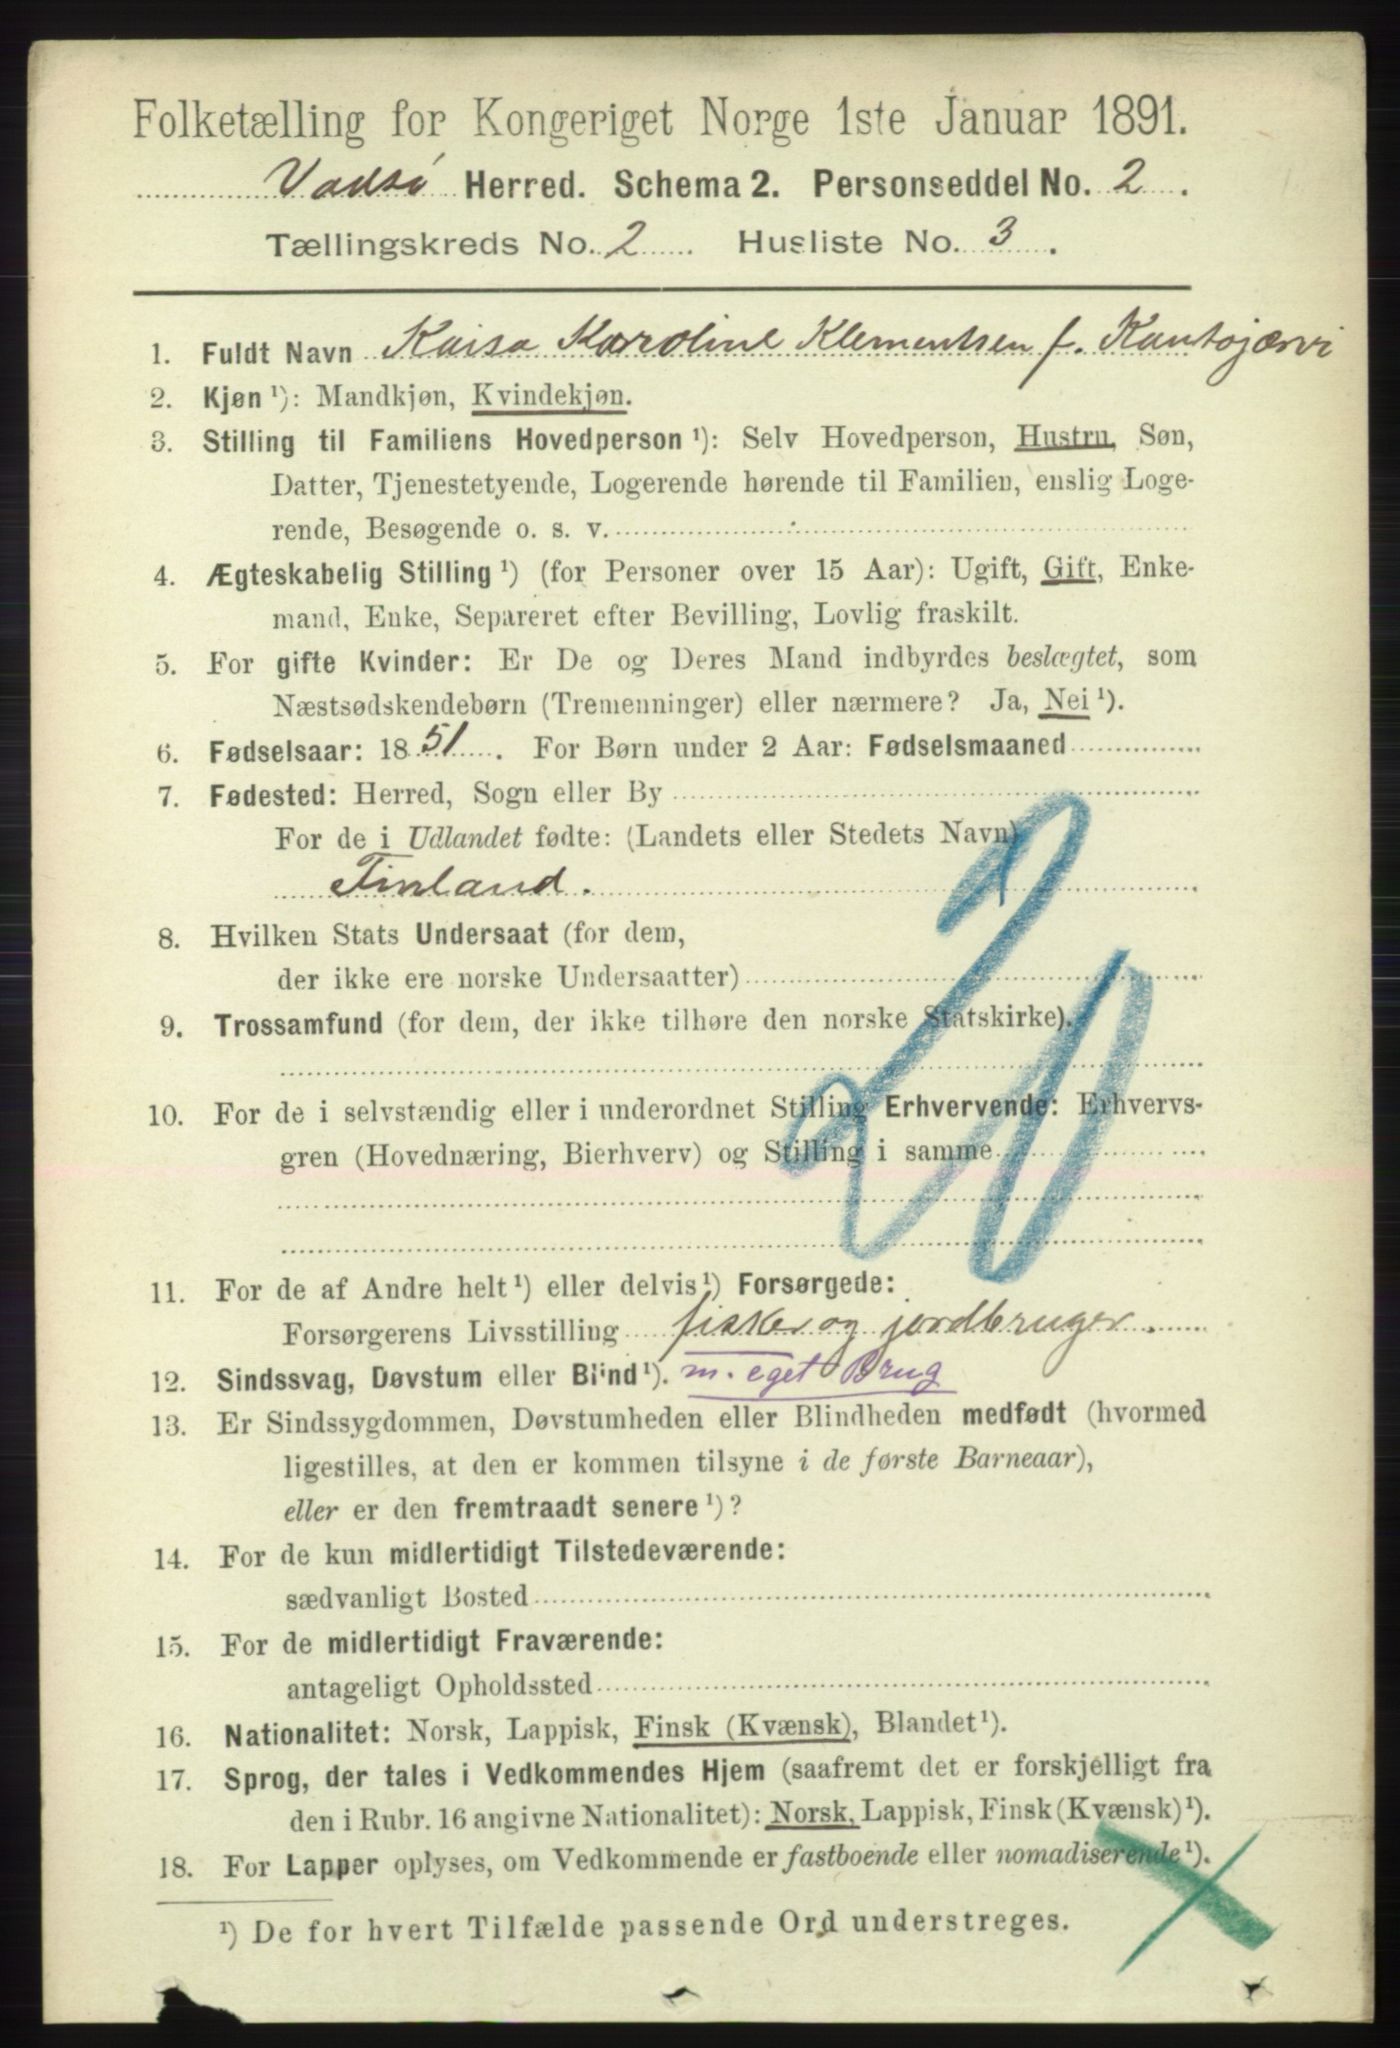 Folketælling for Kongeriget Norge 1ste Januar 1891.
Vadsø Herred. Schema 2. Personseddel No. 2.
Tællingskreds No. 2 Husliste No. 3.
1. Fuldt Navn Kaisa Karoline Klementsen f. Kantojærvi
2. Kjøn ¹): Mandkjøn, Kvindekjøn.
3. Stilling til Familiens Hovedperson ¹): Selv Hovedperson, Hustru, Søn,
Datter, Tjenestetyende, Logerende hørende til Familien, enslig Loge-
rende, Besøgende o. s. v.
4. Ægteskabelig Stilling ¹) (for Personer over 15 Aar): Ugift, Gift, Enke-
mand, Enke, Separeret efter Bevilling, Lovlig fraskilt.
5. For gifte Kvinder: Er De og Deres Mand indbyrdes beslægtet, som
Næstsødskendebørn (Tremenninger) eller nærmere? Ja, Nei ¹).
6. Fødselsaar: 1851. For Børn under 2 Aar: Fødselsmaaned
7. Fødested: Herred, Sogn eller By
For de i Udlandet fødte: (Landets eller Stedets Navn)
Finland.
8. Hvilken Stats Undersaat (for dem,
der ikke ere norske Undersaatter)
9. Trossamfund (for dem, der ikke tilhøre den norske Statskirke).
20
10. For de i selvstændig eller i underordnet Stilling Erhvervende: Erhvervs-
gren (Hovednæring, Bierhverv) og Stilling i samme
11. For de af Andre helt ¹) eller delvis ¹) Forsørgede:
Forsørgerens Livsstilling fisker og jordbruger.
12. Sindssvag, Døvstum eller Blind ¹). m. eget Brug
13. Er Sindssygdommen, Døvstumheden eller Blindheden medfødt (hvormed
ligestilles, at den er kommen tilsyne i de første Barneaar),
eller er den fremtraadt senere ¹)?
14. For de kun midlertidigt Tilstedeværende:
sædvanligt Bosted
15. For de midlertidigt Fraværende:
antageligt Opholdssted
16. Nationalitet: Norsk, Lappisk, Finsk (Kvænsk), Blandet ¹).
17. Sprog, der tales i Vedkommendes Hjem (saafremt det er forskjelligt fra
den i Rubr. 16 angivne Nationalitet): Norsk, Lappisk, Finsk (Kvænsk) ¹).
18. For Lapper oplyses, om Vedkommende er fastboende eller nomadiserende ¹).
¹) De for hvert Tilfælde passende Ord understreges.